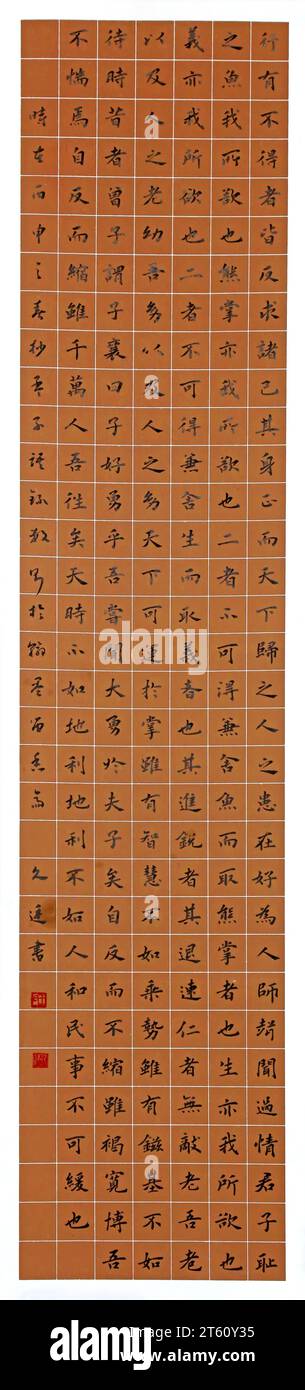 行有不得者皆反求諸己其身正而天下歸之人之患在好為人師聲聞過情君子恥
之魚我所欲也熊掌亦我所欲也二者不可得兼舍魚而取熊掌者也生亦我所欲也
義亦我所欲也二者不可得兼舍生而取義者也其進銳者其退速仁者無敵老吾老
以及人之老幼吾幼以及人之幼天下可運於掌雖有智慧不如乘勢雖有鎡基不如
待時昔者曾子謂子襄曰子好勇乎吾嘗聞大勇於夫子矣自反而不縮雖褐寬博吾
不惴焉自反而縮雖千萬人吾往矣天時不如地利地利不如人和民事不可緩也
時在丙申之春抄孟子語錄數則於翰墨留香齋 久書
alamy
Image ID: 2T60Y35
www.alamy.com